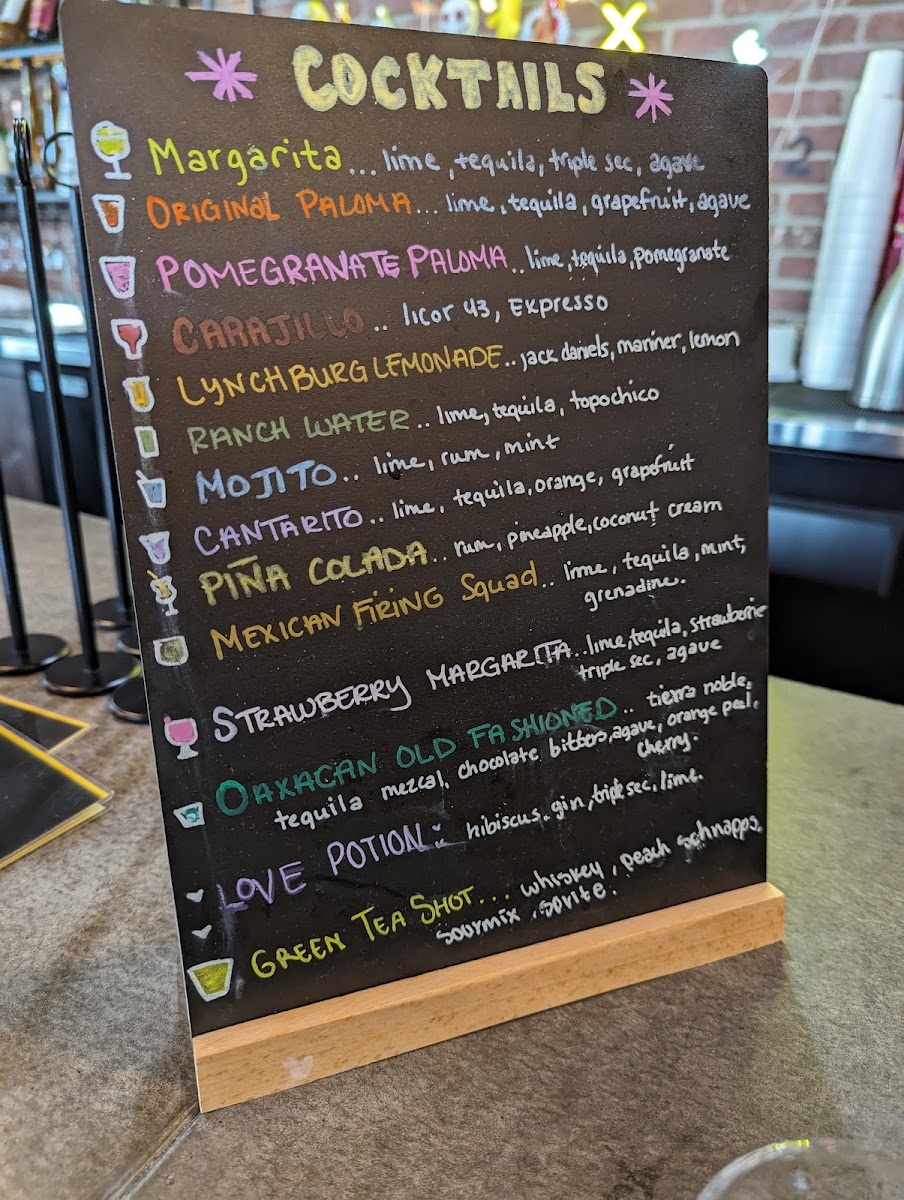 COCKTAILS
Margarita... lime, tequila, triple sec, agave
ORIGINAL PALOMA... lime, tequila, grapefruit, agave
POMEGRANATE PALOMA.. lime, tequila, pomegranate
CARAJILLO.. licor 43, Expresso
LYNCHBURG LEMONADE.. jack daniels, mariner, lemon
RANCH WATER.. lime, tequila, topochico
MOJITO.. lime, rum, mint
CANTARITO.. lime, tequila, orange, grapefruit
PIÑA COLADA.. rum, pineapple, coconut cream
MEXICAN FIRING Squad.. lime, tequila, mint,
grenadine.
STRAWBERRY MARGARITA.. lime, tequila, strawberrie
triple sec, agave
OAXACAN OLD FASHIONED.. tierra noble,
tequila mezcal, chocolate bitters, agave, orange peel,
cherry.
LOVE POTION: hibiscus, gin, triple sec, lime.
GREEN TEA SHOT... whiskey, peach schnapps,
sourmix, sprite.